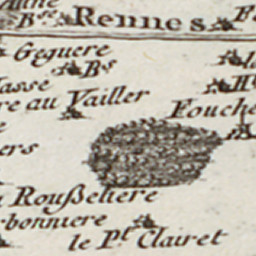 Rennes
Geguere
Bs
Vasse
re au Vailler
Fouche
ers
Roußeliere
bonniere
le Pt. Clairet